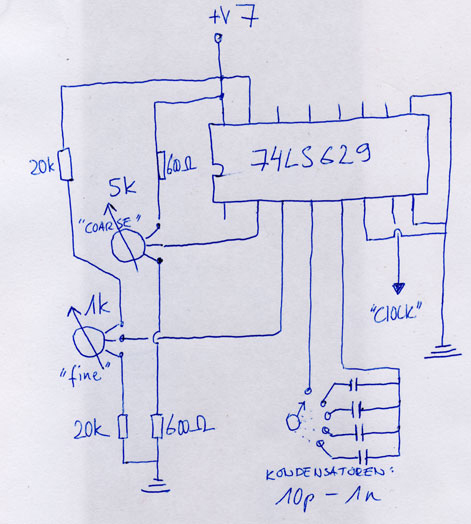 +V 7
20k
600Ω
74LS629
5k
"COARSE"
1k
"fine"
"CLOCK"
20k
600Ω
KONDENSATOREN:
10p - 1n